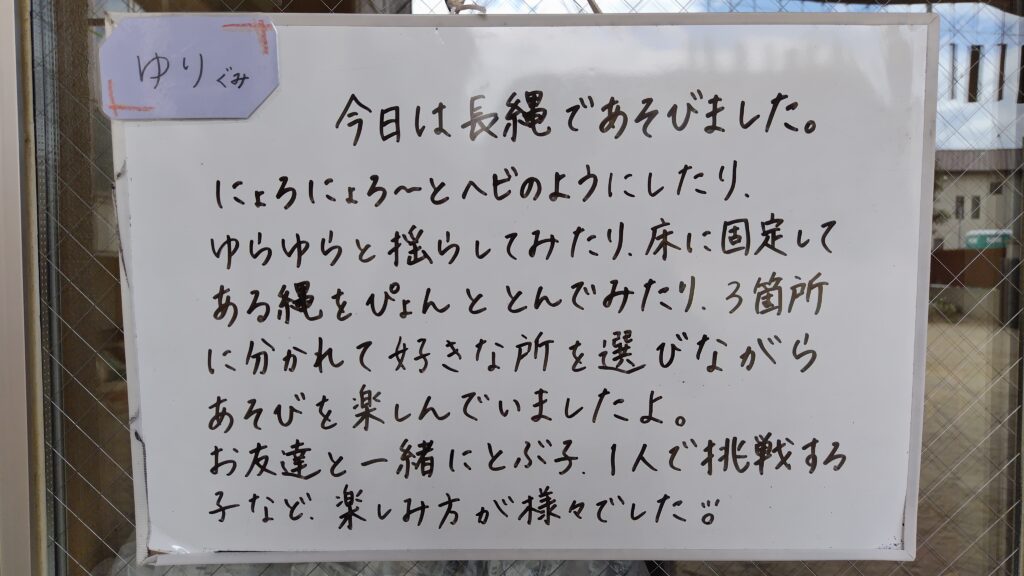 ゆりぐみ
今日は長縄であそびました。
にょろにょろ〜とヘビのようにしたり、
ゆらゆらと揺らしてみたり、床に固定して
ある縄をぴょんととんでみたり、3箇所
に分かれて好きな所を選びながら
あそびを楽しんでいましたよ。
お友達と一緒にとぶ子、1人で挑戦する
子など、楽しみ方が様々でした。